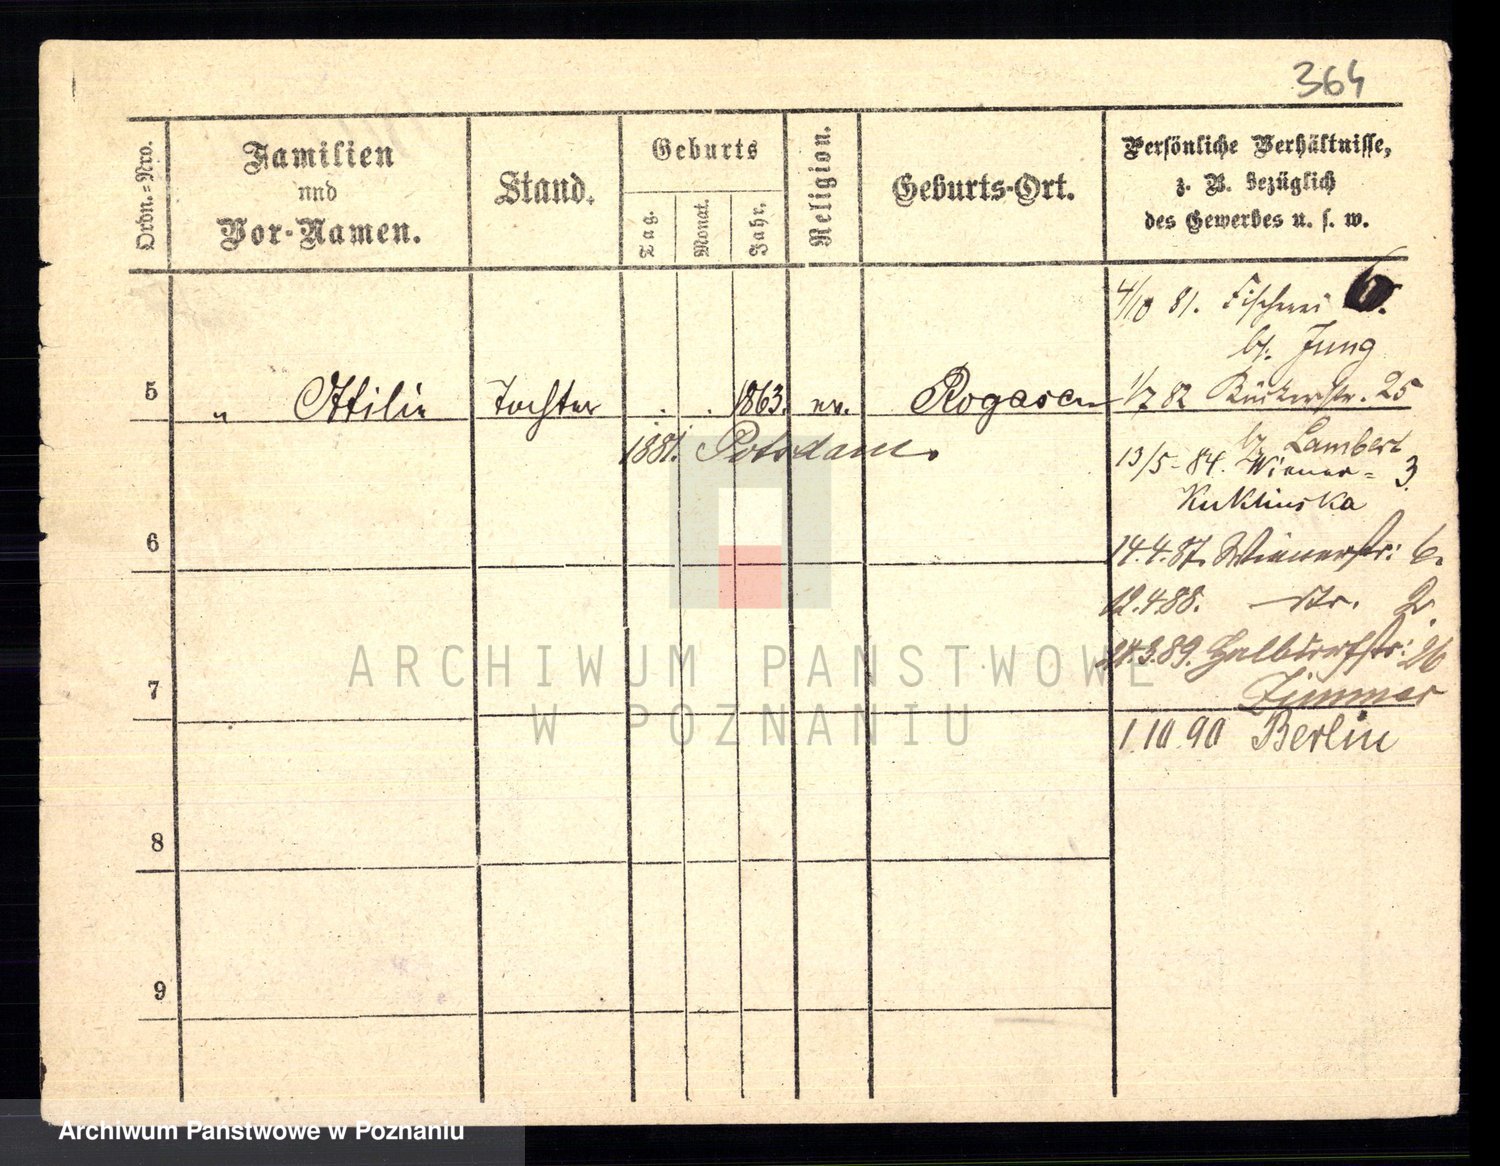 364
Ordn.=Nro.
Familien
und
Vor-Namen.
Stand.
Geburts
Tag.
Monat.
Jahr.
Religion.
Geburts-Ort.
Persönliche Verhältnisse,
z. B. bezüglich
des Gewerbes u. s. w.
4/10 81. Fischerei
bj. Jung
5 " Ottilie Tochter . . 1863. ev. Rogasen
1/7 82 Bäckerstr. 25
1881. Potsdam.
bj Lambert
13/5 - 84. Wiener= 3.
Kuklinska
6
14.4.87. Wienerstr: 6.
12.4.88. — str. 2.
.3.89. Halbdorfstr: 26
Zimmer
7
1 10 90 Berlin
8
9
ARCHIWUM PAŃSTWOWE
W POZNANIU
Archiwum Państwowe w Poznaniu